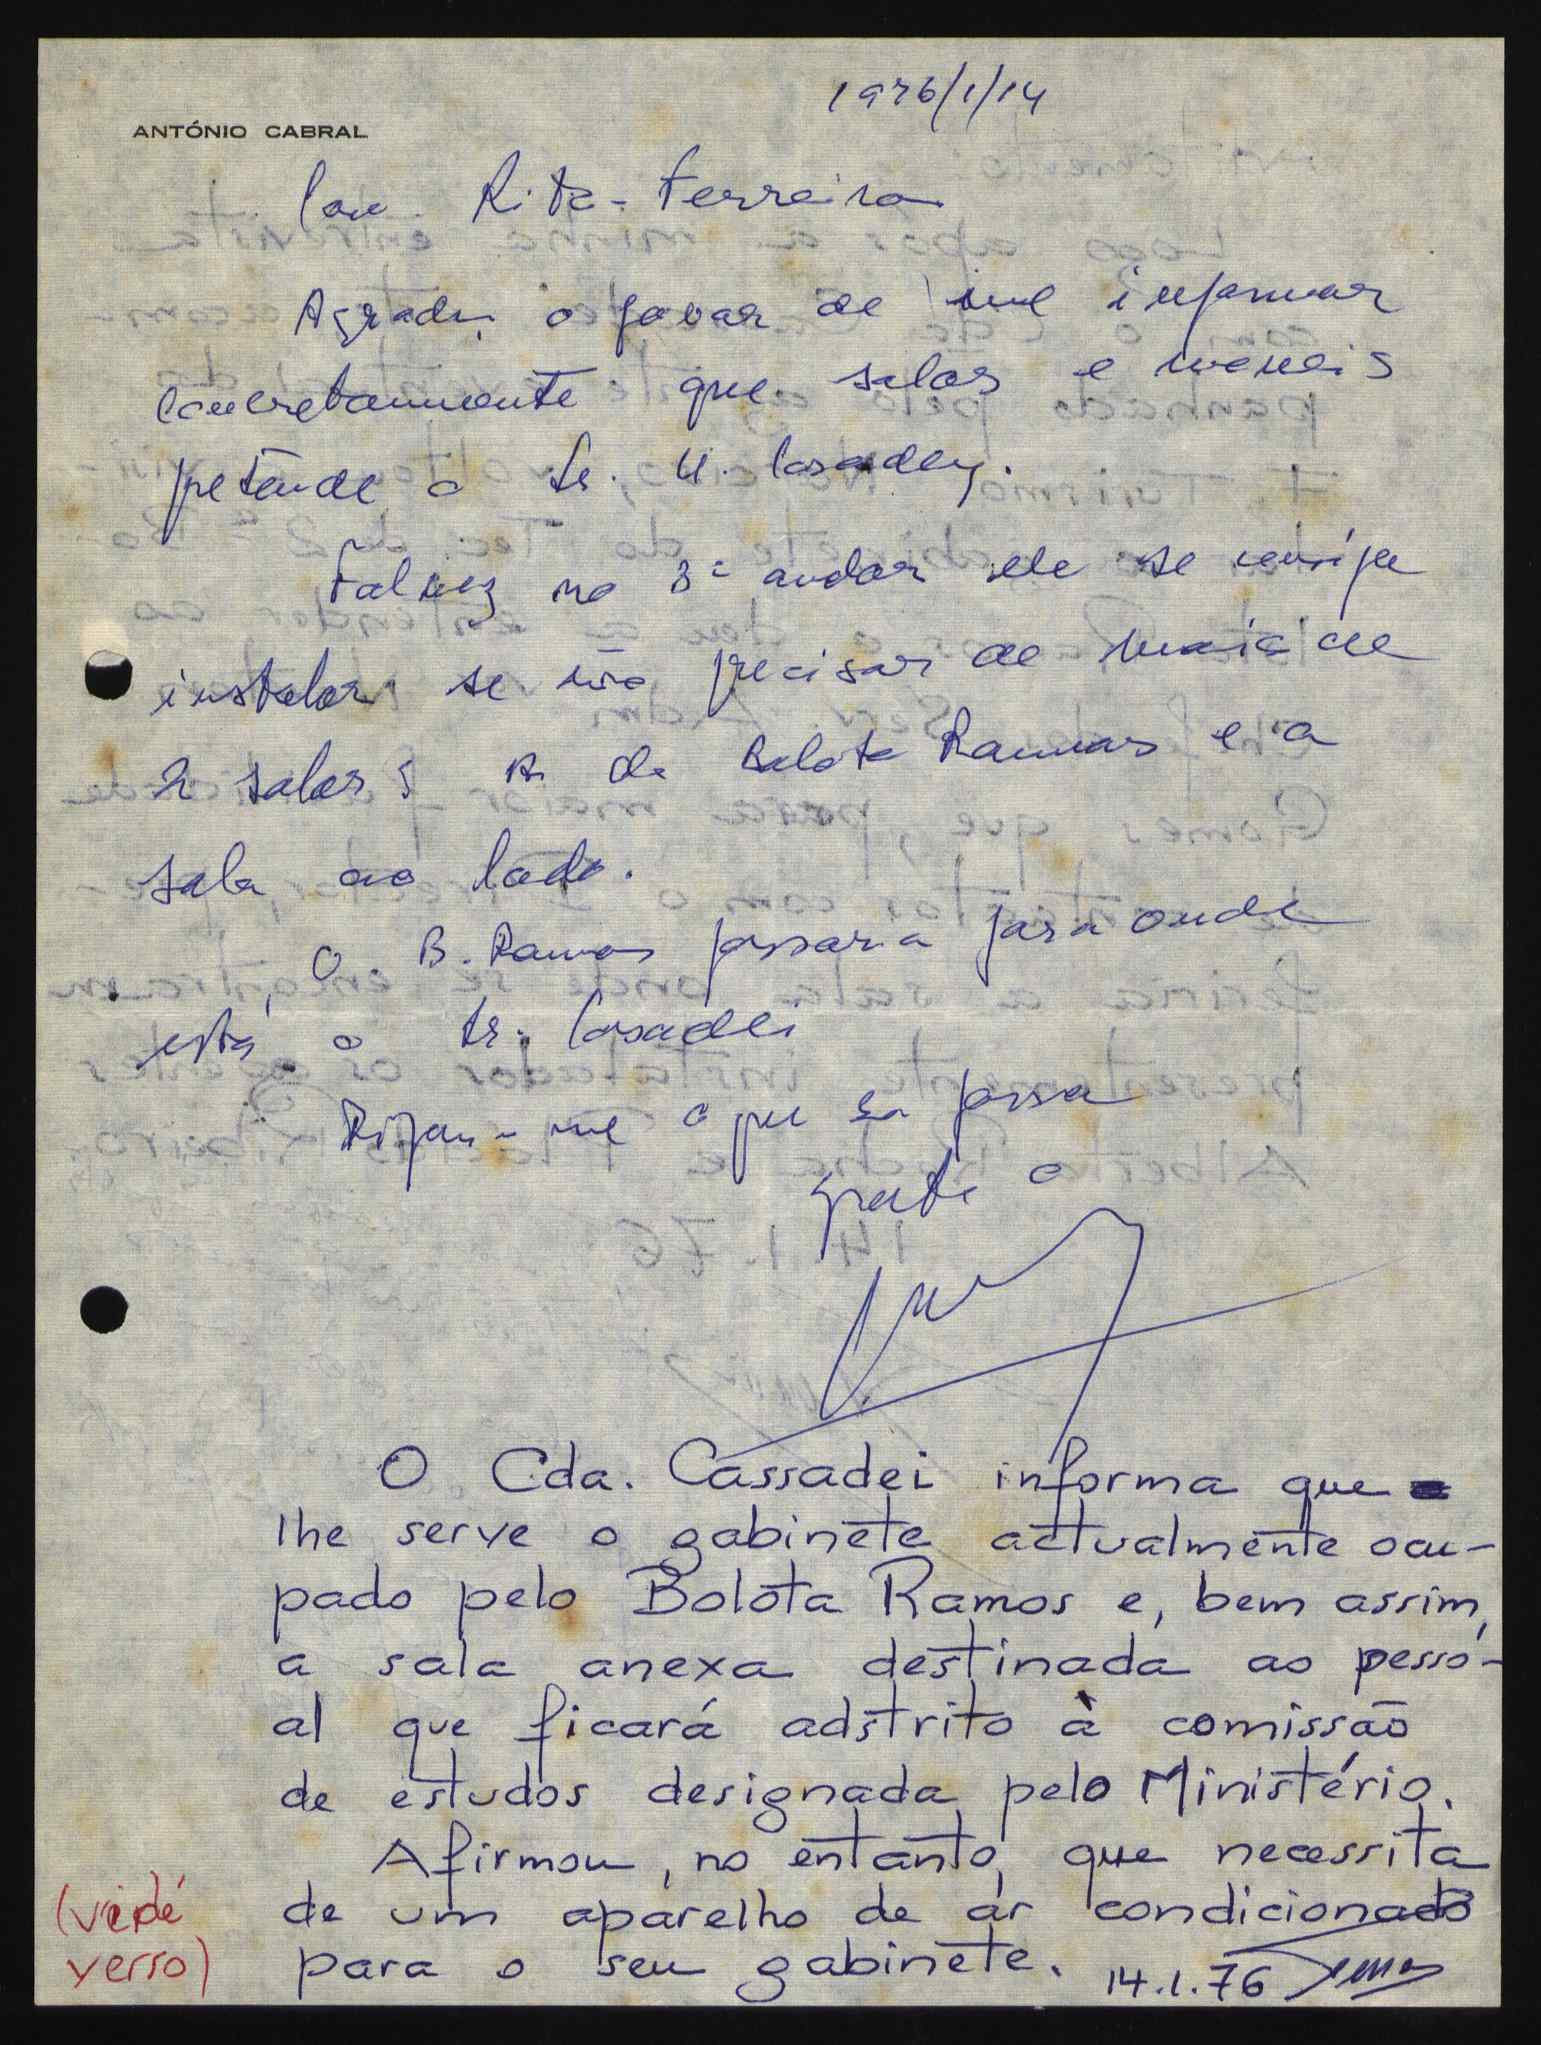 1976/1/14
ANTÓNIO CABRAL
Rita-Ferreira
Agradeço o favor de me informar
concretamente que salas e móveis
pretende o Sr. U. Casadey.
Talvez no 3º andar ele se consiga
instalar se não precisar de mais de
2 salas; a do Bolota Ramos e a
sala ao lado.
O B. Ramos passaria para onde
está o Sr. Casadei
Digam-me o que se passa
grato
O Cda. Cassadei informa que
lhe serve o gabinete actualmente ocu-
pado pelo Bolota Ramos e, bem assim,
a sala anexa destinada ao pesso-
al que ficará adstrito à comissão
de estudos designada pelo Ministério.
Afirmou, no entanto, que necessita
de um aparelho de ar condicionado
para o seu gabinete. 14.1.76
(vidé
verso)